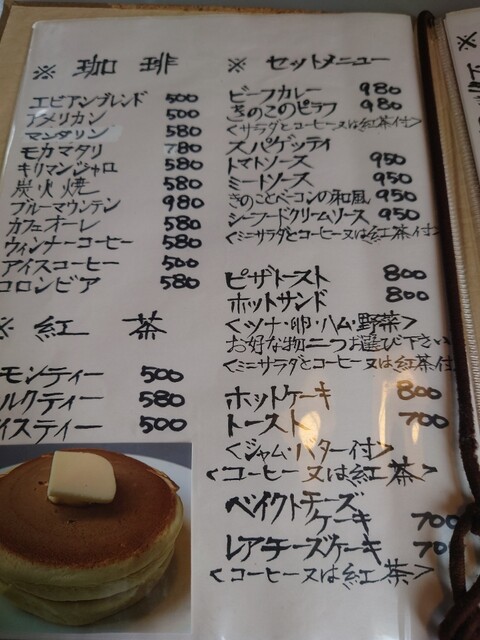 ※ 珈 琲
エビアンブレンド 500
アメリカン 500
マンダリン 580
モカマタリ 780
キリマンジャロ 580
炭火焼 580
ブルーマウンテン 980
カフェオーレ 580
ウィンナーコーヒー 580
アイスコーヒー 500
コロンビア 580
※ 紅 茶
モンティー 500
ルクティー 580
イスティー 500
※ セットメニュー
ビーフカレー 980
きのこのピラフ 980
<サラダとコーヒー又は紅茶付>
スパゲッティ
トマトソース 950
ミートソース 950
きのことベーコンの和風 950
シーフードクリームソース 950
<ミニサラダとコーヒー又は紅茶付>
ピザトースト 800
ホットサンド 800
<ツナ・卵・ハム・野菜>
お好な物二つお選び下さい
<ミニサラダとコーヒー又は紅茶付
ホットケーキ 800
トースト 700
<ジャム・バター付>
<コーヒー又は紅茶>
ベイクトチーズ
ケーキ 700
レアチーズケーキ 70
<コーヒー又は紅茶>
※